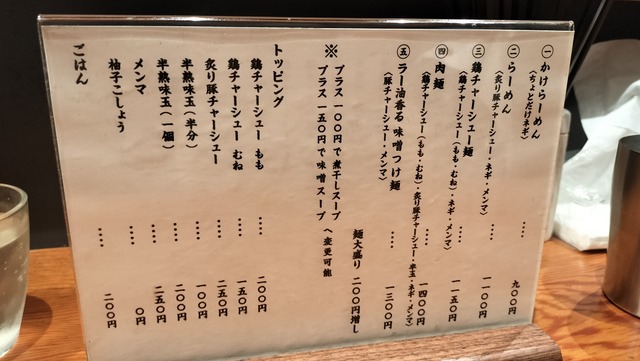 ㊀ かけらーめん
(ちょとだけネギ)
・・・・ 九〇〇円
㊁ らーめん
(炙り豚チャーシュー・ネギ・メンマ)
・・・・ 一一〇〇円
㊂ 鶏チャーシュー麺
(鶏チャーシュー(もも・むね)・ネギ・メンマ)
・・・・ 一一五〇円
㊃ 肉麺
(鶏チャーシュー(もも・むね)・炙り豚チャーシュー・半玉・ネギ・メンマ)
・・・・ 一四〇〇円
㊄ ラー油香る 味噌つけ麺
(豚チャーシュー・メンマ)
・・・・ 一三〇〇円
麺大盛り 二〇〇円増し
※ プラス 一〇〇円で 煮干しスープ
プラス 一五〇円で 味噌スープ へ変更可能
トッピング
鶏チャーシュー もも ・・・・ 二〇〇円
鶏チャーシュー むね ・・・・ 一五〇円
炙り豚チャーシュー ・・・・ 二五〇円
半熟味玉(半分) ・・・・ 一〇〇円
半熟味玉(一個) ・・・・ 二〇〇円
メンマ ・・・・ 二五〇円
柚子こしょう ・・・・ 〇円
ごはん ・・・・ 二〇〇円